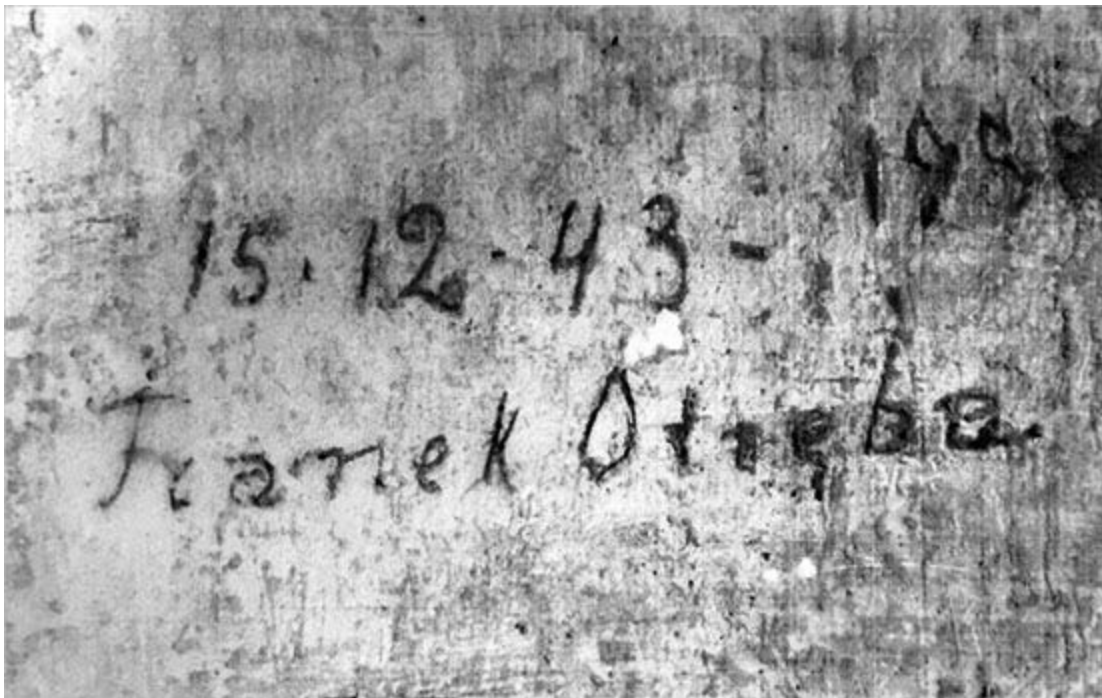 15. 12 - 43 -
Franek Otręba